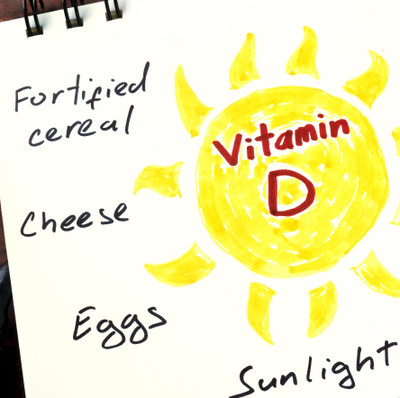 Fortified
cereal
Vitamin
D
Cheese
Eggs
Sunlight